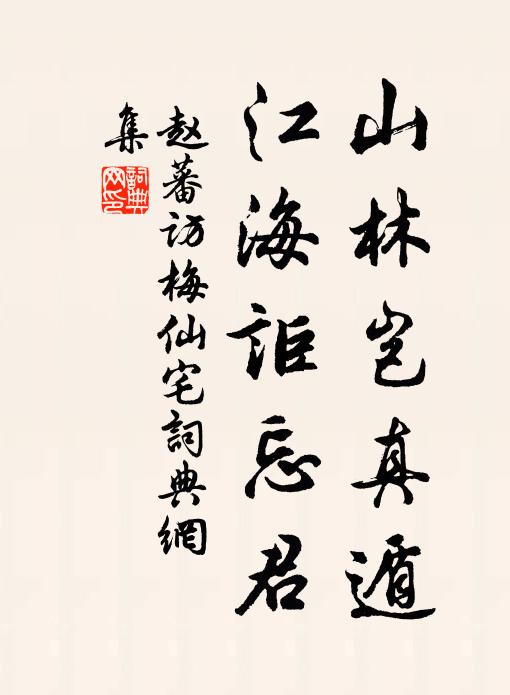 山林岂真遁
江海詎忘君
赵蕃访梅仙宅詞典網
集
詞典
网印